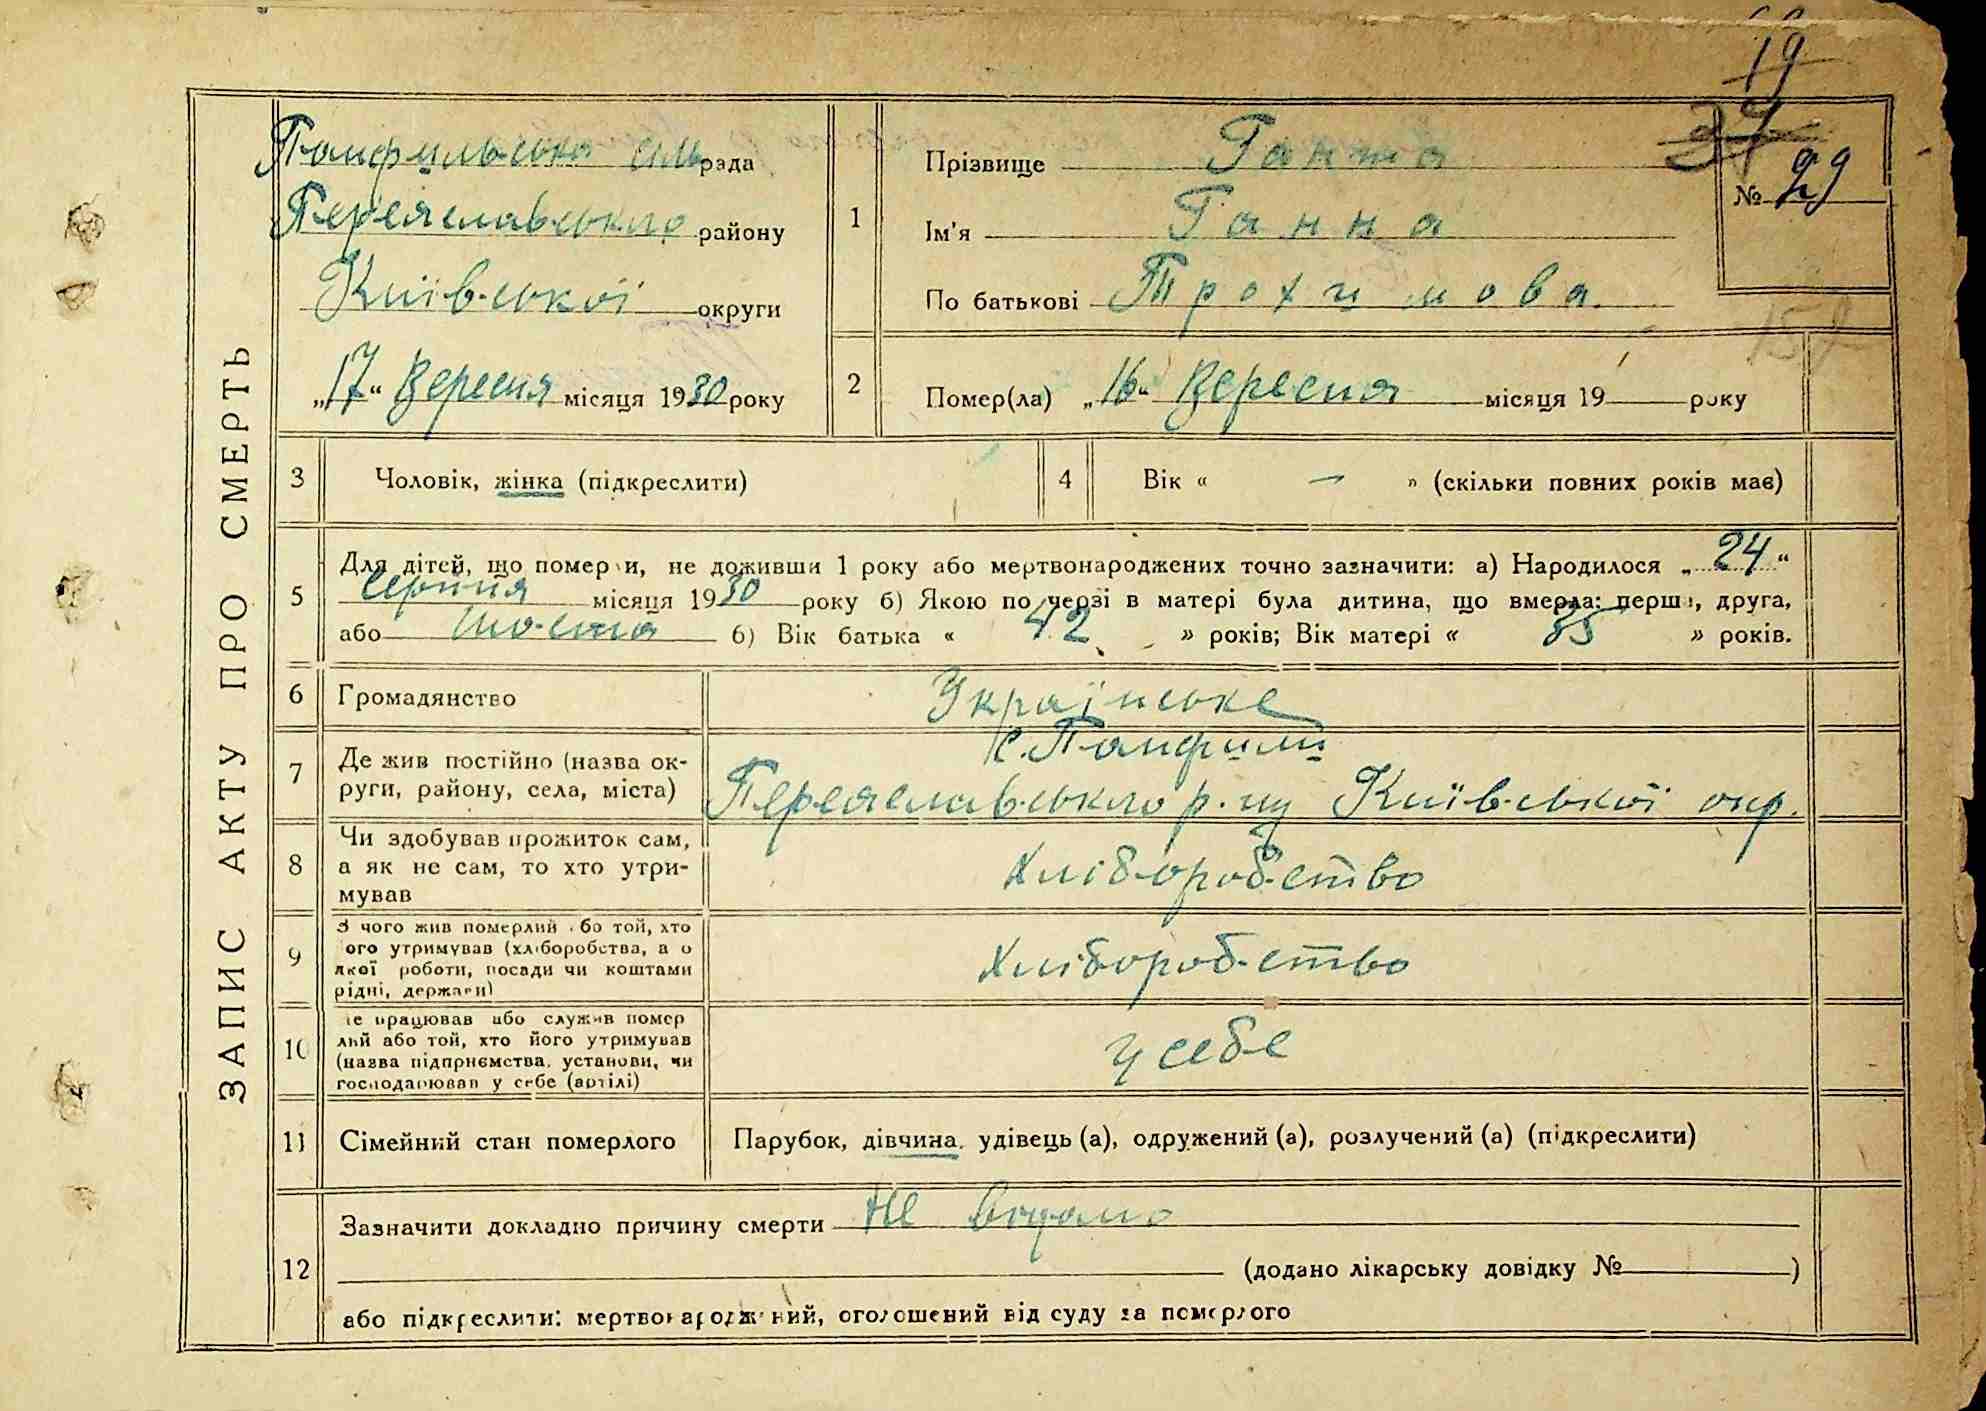 19
37
ЗАПИС АКТУ ПРО СМЕРТЬ
Панфильська сільрада
Переяславського району
Київської округи
„17“ Вересня місяця 1930 року
1
Прізвище Ганжа
Ім'я Ганна
По батькові Трохимова.
№ 29
152
2
Помер(ла) „16“ Вересня місяця 19 року
3
Чоловік, жінка (підкреслити)
4
Вік « — » (скільки повних років має)
5
Для дітей, що померли, не доживши 1 року або мертвонароджених точно зазначити: а) Народилося „24“
Серпня місяця 1930 року б) Якою по черзі в матері була дитина, що вмерла: перша, друга,
або Шоста б) Вік батька « 42 » років; Вік матері « 35 » років.
6
Громадянство
Українське
7
Де жив постійно (назва ок-
руги, району, села, міста)
с. Панфили
Переяславського р-ну Київської окр.
8
Чи здобував прожиток сам,
а як не сам, то хто утри-
мував
Хліборобство
9
З чого жив померлий або той, хто
його утримував (хліборобства, а о
якої роботи, посади чи коштами
рідні, держави)
Хліборобство
10
Де працював або служив помер
лий або той, хто його утримував
(назва підприємства, установи, чи
господарював у себе (артілі)
у себе
11
Сімейний стан померлого
Парубок, дівчина, удівець (а), одружений (а), розлучений (а) (підкреслити)
12
Зазначити докладно причину смерти Не відомо
(додано лікарську довідку № )
або підкреслити: мертвонароджений, оголошений від суду за померлого